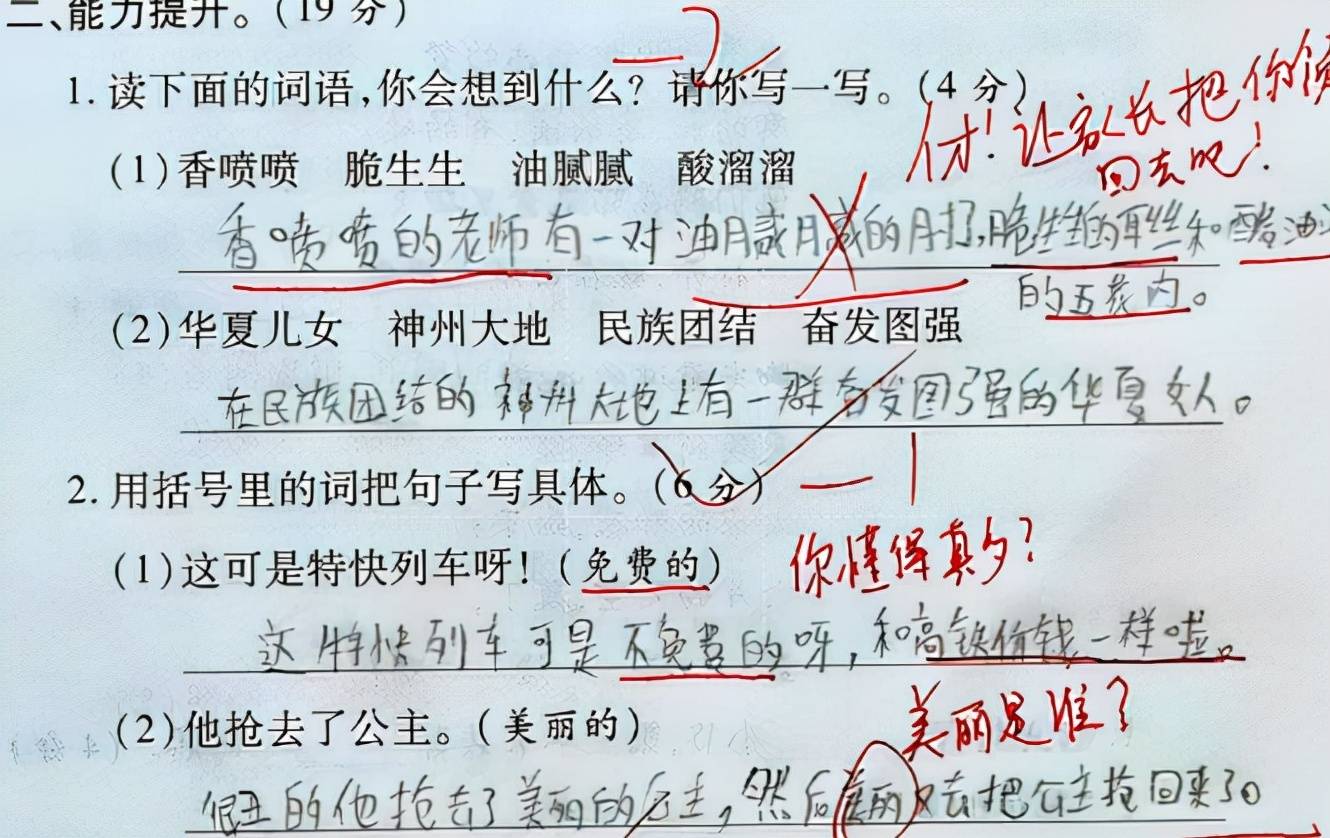 二、能力提升。(19 分)
-2
1. 读下面的词语,你会想到什么? 请你写一写。(4 分)
付! 让家长把你领
回去吧!
(1)香喷喷 脆生生 油腻腻 酸溜溜
香喷喷的老师有一对油腻腻的 脆生生的耳丝和酸油
的五花肉。
(2)华夏儿女 神州大地 民族团结 奋发图强
在民族团结的神州大地上有一群奋发图强的华夏女人。
2. 用括号里的词把句子写具体。(6 分) -1
(1)这可是特快列车呀! (免费的)
你懂得真多?
这特快列车可是不免费的呀,和高铁价钱一样啦。
(2)他抢去了公主。(美丽的)
美丽是谁?
很丑的他抢去了美丽的公主,然后美丽又去把公主抢回来了。